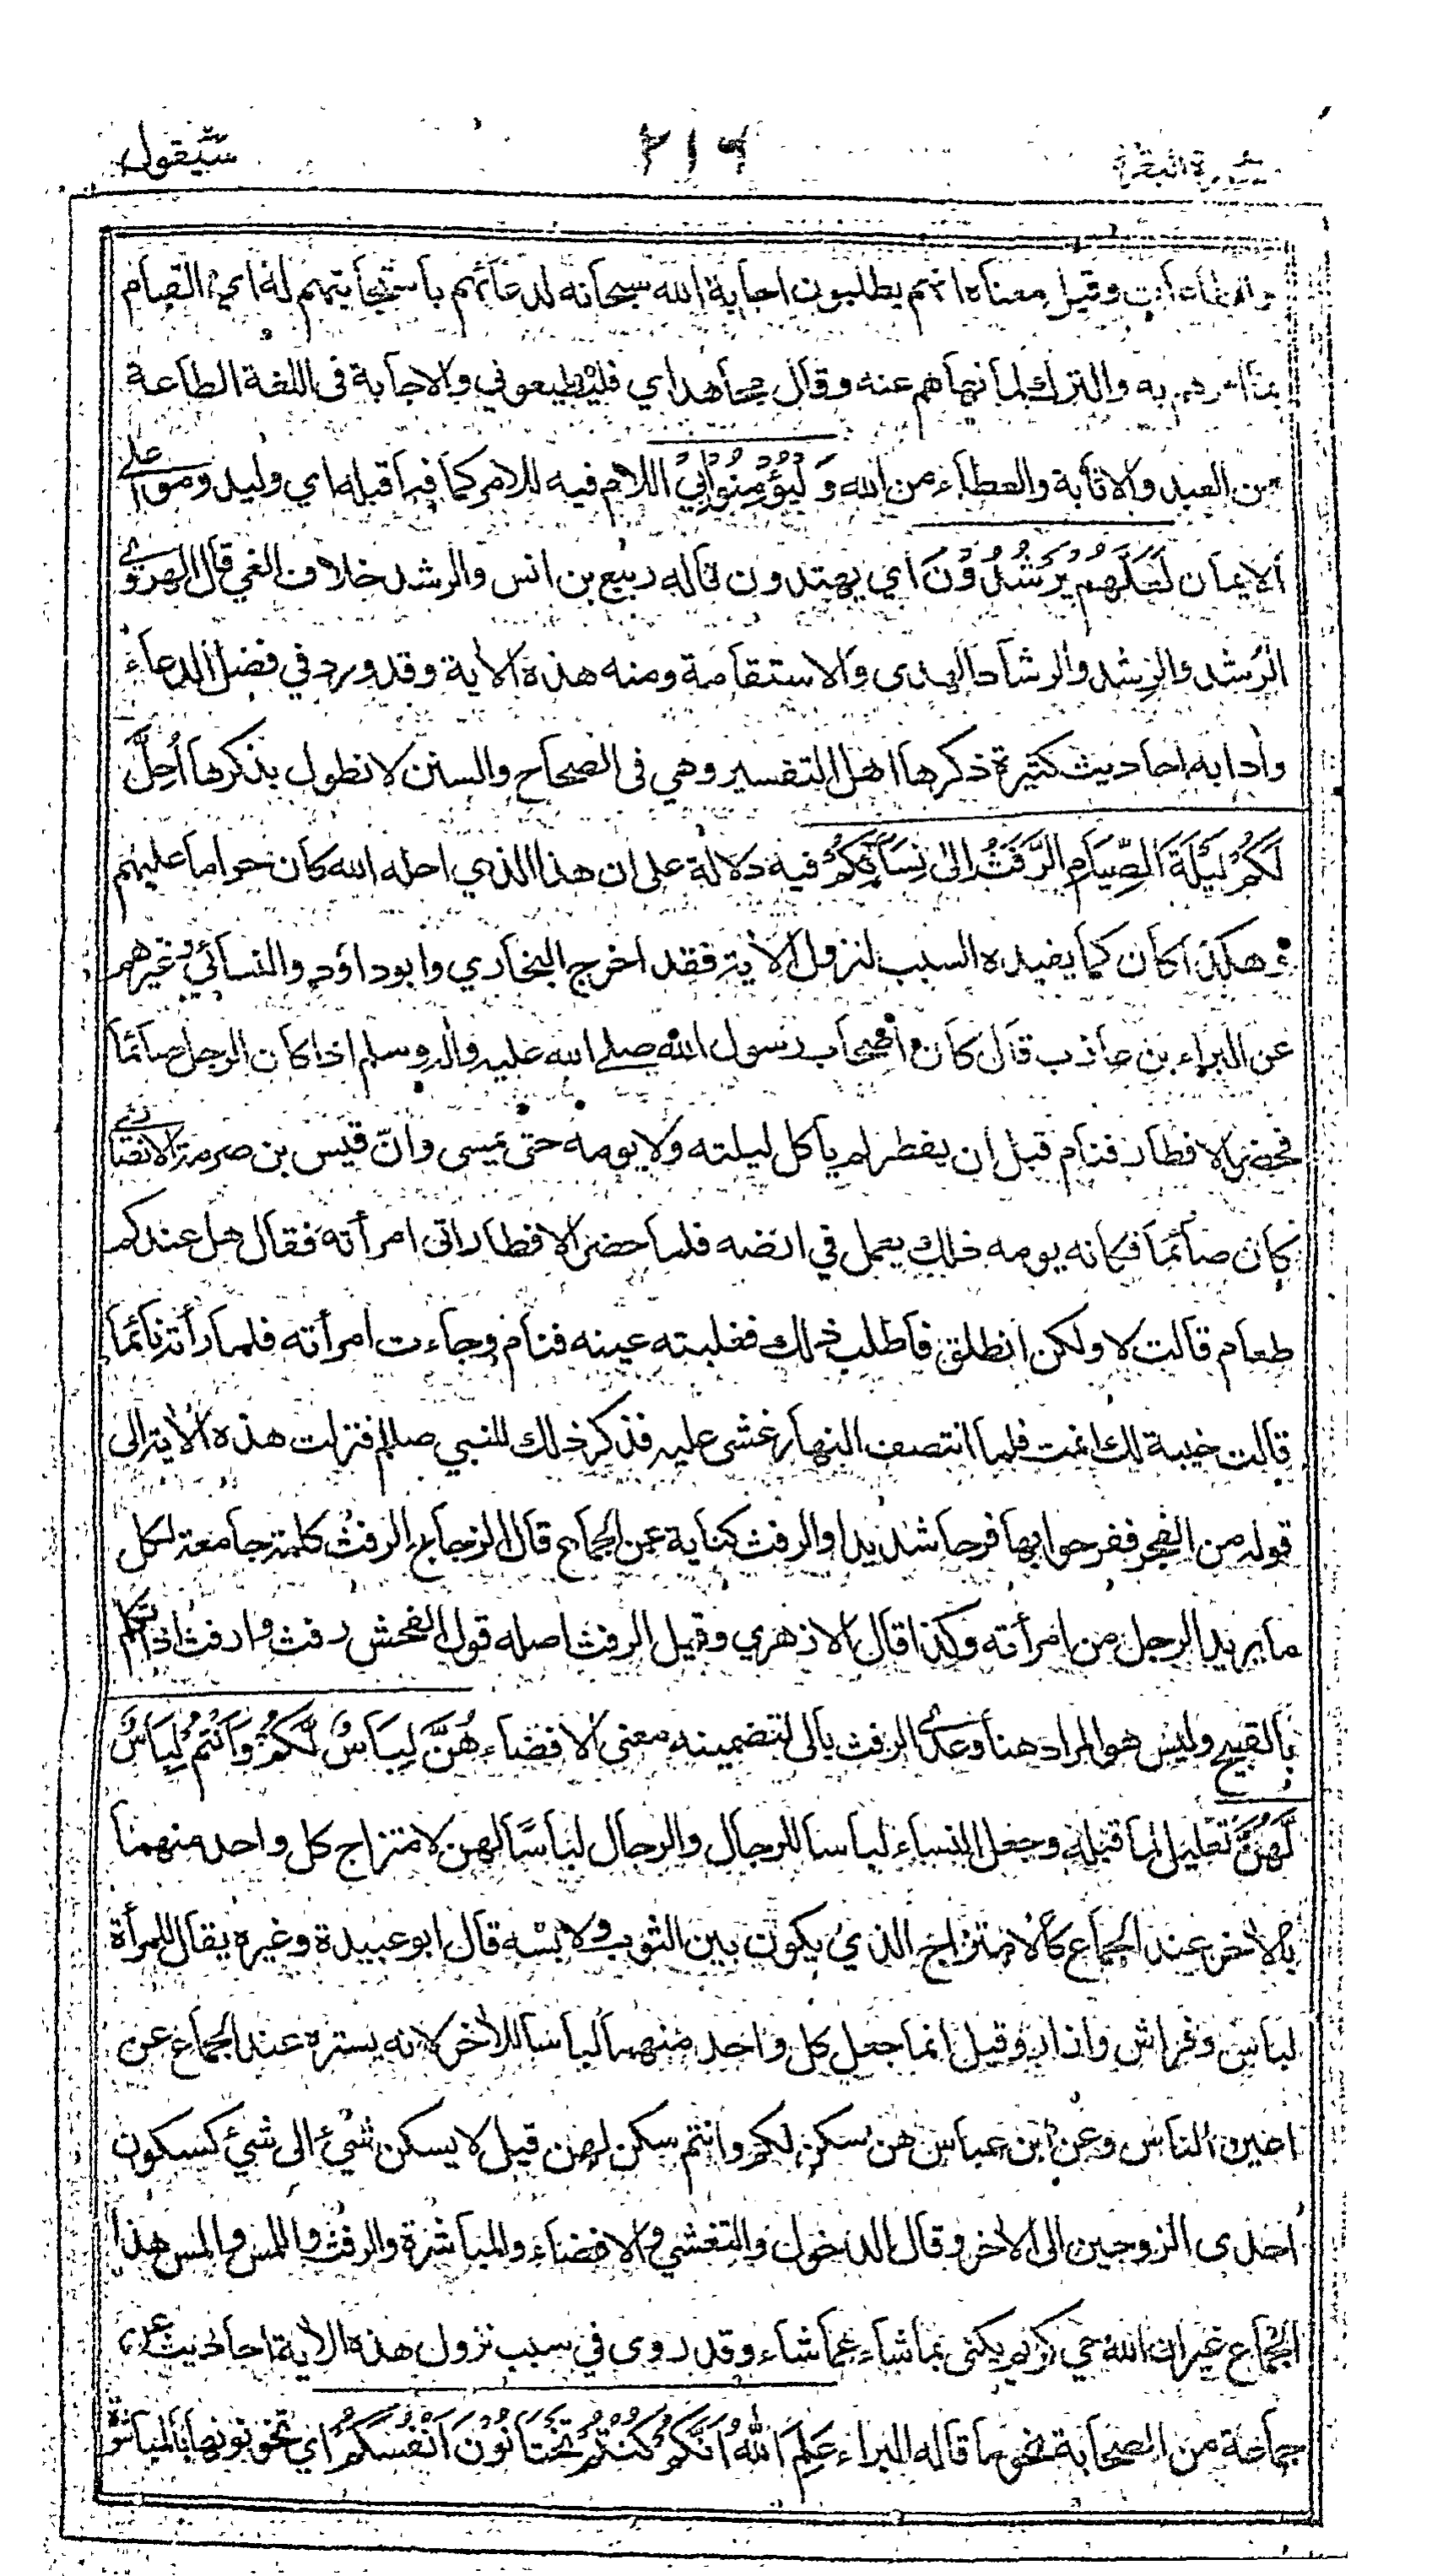 سورة البقرة
٢١٩
سيقول
والطاعات وقيل معناه انهم يطلبون اجابة الله سبحانه لدعائهم باستجابتهم له اي القيام
بما امرهم به والترك لما نهاهم عنه وقال مجاهد اي فليطيعوني والاجابة فى اللغة الطاعة
من العبد والاثابة والعطاء من الله وَلْيُؤْمِنُوْا بِيْ اللام فيه للامر كما فيما قبله اي وليدوموا على
الايمان لَعَلَّهُمْ يَرْشُدُوْنَ اي يهتدون قاله ربيع بن انس والرشد خلاف الغي قال الهروي
الرُشد والرشد والرشاد الهدى والاستقامة ومنه هذه الآية وقد ورد في فضل الدعاء
وآدابه احاديث كثيرة ذكرها اهل التفسير وهي فى الصحاح والسنن لا نطول بذكرها اُحِلَّ
لَكُمْ لَيْلَةَ الصِّيَامِ الرَّفَثُ اِلىٰ نِسَآئِكُمْ فيه دلالة على ان هذا الذي احله الله كان حراما عليهم
وهكذا كان كما يفيده السبب لنزول الآية فقد اخرج البخاري وابوداؤد والنسائي وغيرهم
عن البراء بن عازب قال كان اصحاب رسول الله صلى الله عليه واله وسلم اذا كان الرجل صائما
فحضر الافطار فنام قبل ان يفطر لم يأكل ليلته ولا يومه حتى يمسى وانّ قيس بن صرمة الانصاري
كان صائما فكانه يومه ذلك يعمل في ارضه فلما حضر الافطار اتى امرأته فقال هل عندكم
طعام قالت لا ولكن انطلق فاطلب لك فغلبته عينه فنام وجاءت امرأته فلما رأته نائما
قالت خيبة لك انمت فلما انتصف النهار غشى عليه فذكر ذلك للنبي صللم فنزلت هذه الآية الى
قوله من الفجر ففرحوا بها فرحا شديدا والرفث كناية عن الجماع قال الزجاج الرفث كلمة جامعة لكل
ما يريد الرجل من امرأته وكذا قال الازهري وقيل الرفث اصله قول الفحش رفث وارفث اذا تكلم
بالقبيح وليس هو المراد هنا وعدى الرفث بالى لتضمينه معنى الافضاء هُنَّ لِبَاسٌ لَّكُمْ وَاَنْتُمْ لِبَاسٌ
لَّهُنَّ تعليل لما قبله وجعل النساء لباسا للرجال والرجال لباسًا لهن لامتزاج كل واحد منهما
بالآخر عند الجماع كالامتزاج الذي يكون بين الثوب ولابسه قال ابو عبيدة وغيره يقال للمرأة
لباس وفراش وازار وقيل انما جعل كل واحد منهما لباسا للآخر لانه يستره عند الجماع عن
اعين الناس وعن ابن عباس هن سكن لكم وانتم سكن لهن قيل لا يسكن شيء الى شيء كسكون
احدى الزوجين الى الآخر وقال الدخول والتغشي والافضاء والمباشرة والرفث واللمس والمس هذا
الجماع غير ان الله حي كريم يكنى بما شاء عما شاء وقد روى في سبب نزول هذه الآية احاديث عن
جماعة من الصحابة نحو ما قاله البراء عَلِمَ اللهُ اَنَّكُمْ كُنْتُمْ تَخْتَانُوْنَ اَنْفُسَكُمْ اي تخونونها بالمباشرة